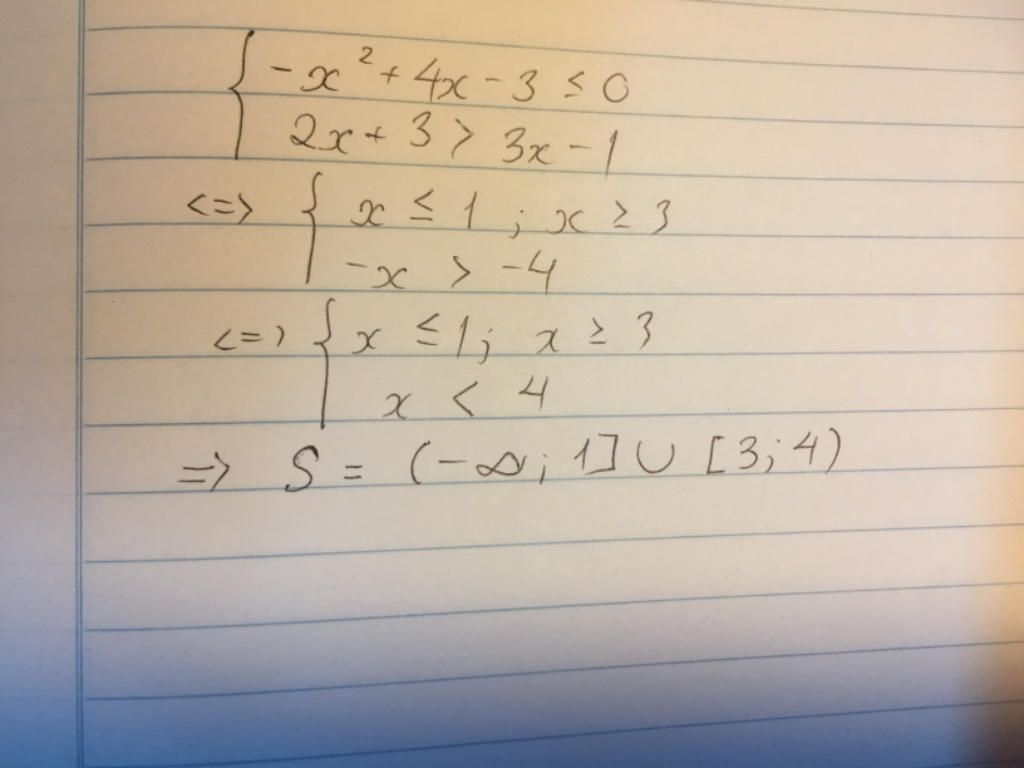 { -x² + 4x - 3 ≤ 0
2x + 3 > 3x - 1
<=> { x ≤ 1 ; x ≥ 3
-x > -4
<=> { x ≤ 1; x ≥ 3
x < 4
=> S = (-∞; 1] ∪ [3; 4)